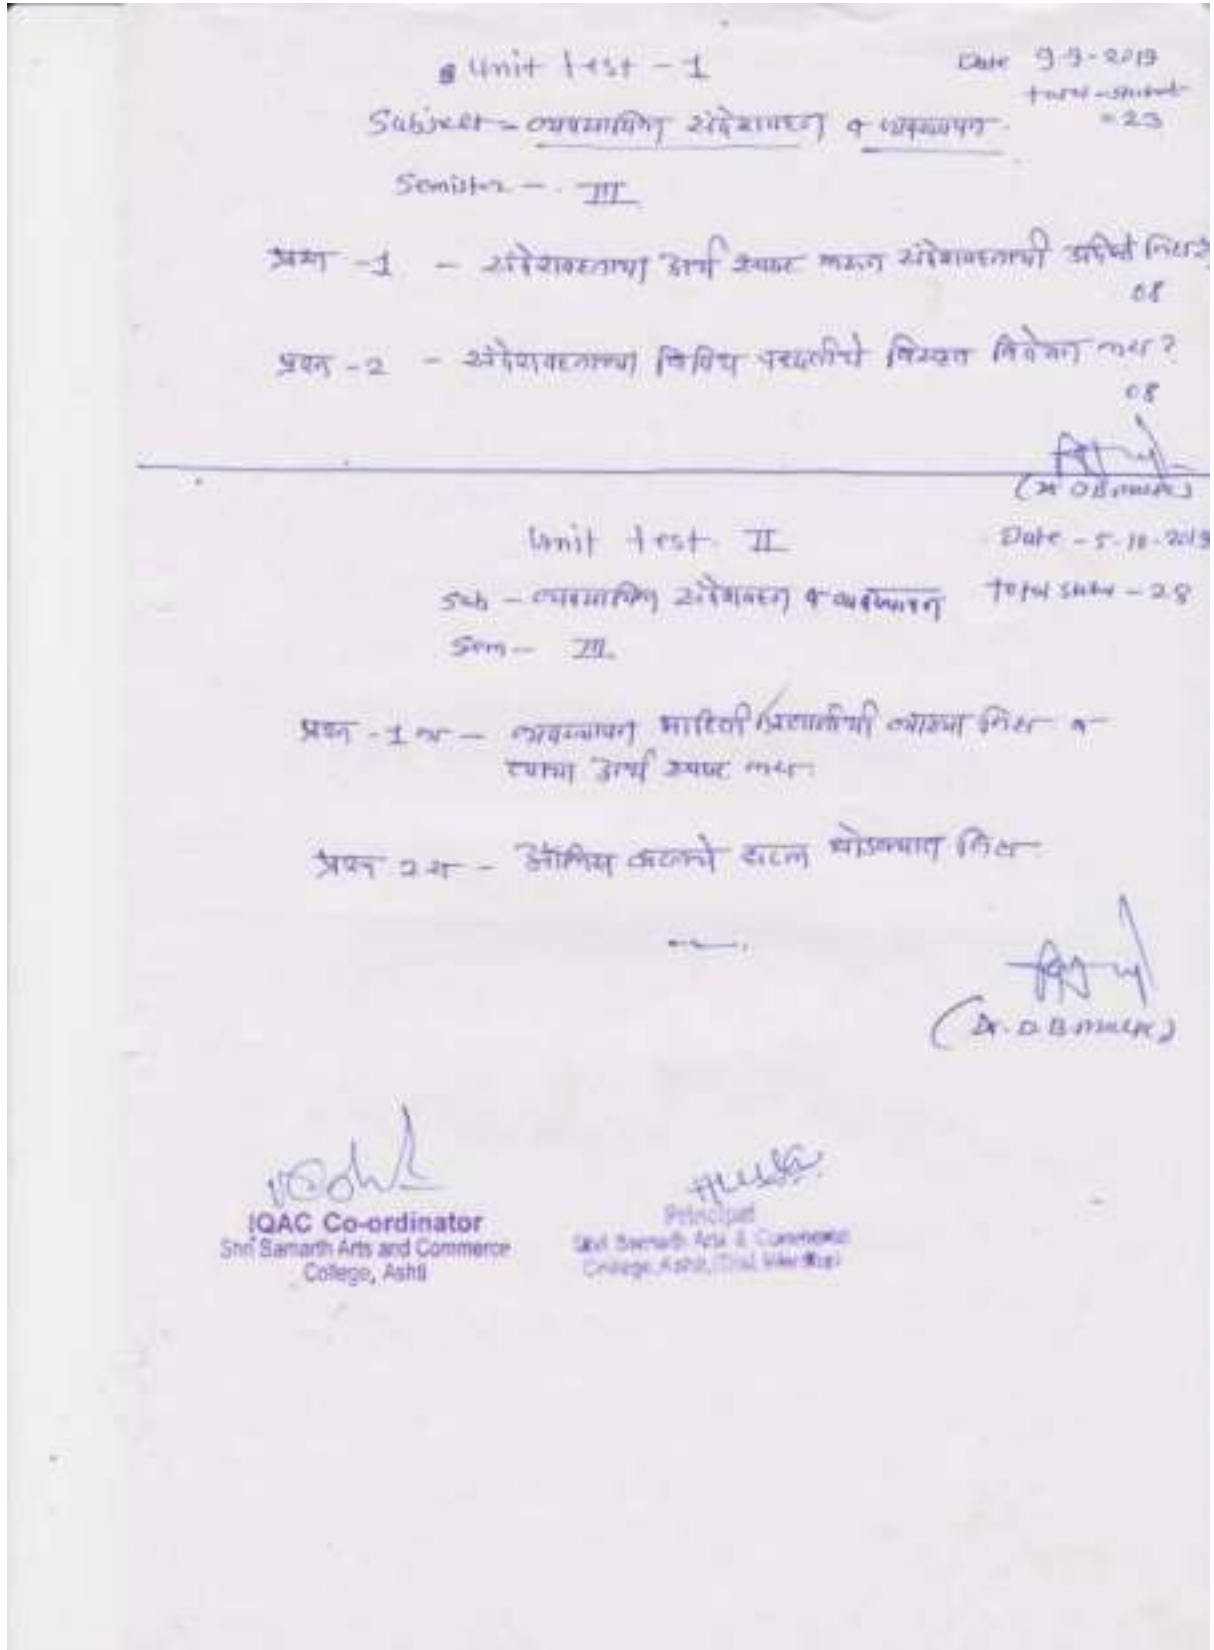 Unit test - 1
Date 9-9-2019
Total - Student
= 23
Subject - व्यवसायिक संदेशवहन व व्यवस्थापन
Semister - III
प्रश्न -1 - संदेशवहनाचा अर्थ स्पष्ट करून संदेशवहनाची उद्दिष्टे लिहा?
08
प्रश्न -2 - संदेशवहनाच्या विविध पद्धतीचे विस्तृत विवेचन करा?
08
(Dr D B
Unit test. II
Date - 5-10-2019
Sub - व्यवसायिक संदेशवहन व व्यवस्थापन
Total - 28
Sem - III
प्रश्न -1 - व्यवस्थापन माहिती प्रणालीची व्याख्या लिहा व
त्याचा अर्थ स्पष्ट करा.
प्रश्न 2 - थोडक्यात लिहा
(Dr. D. B.
IQAC Co-ordinator
Shri Samarth Arts and Commerce
College, Ashti
Principal
Shri Samarth Arts & Commerce
College, Ashti, (Dist. Wardha)